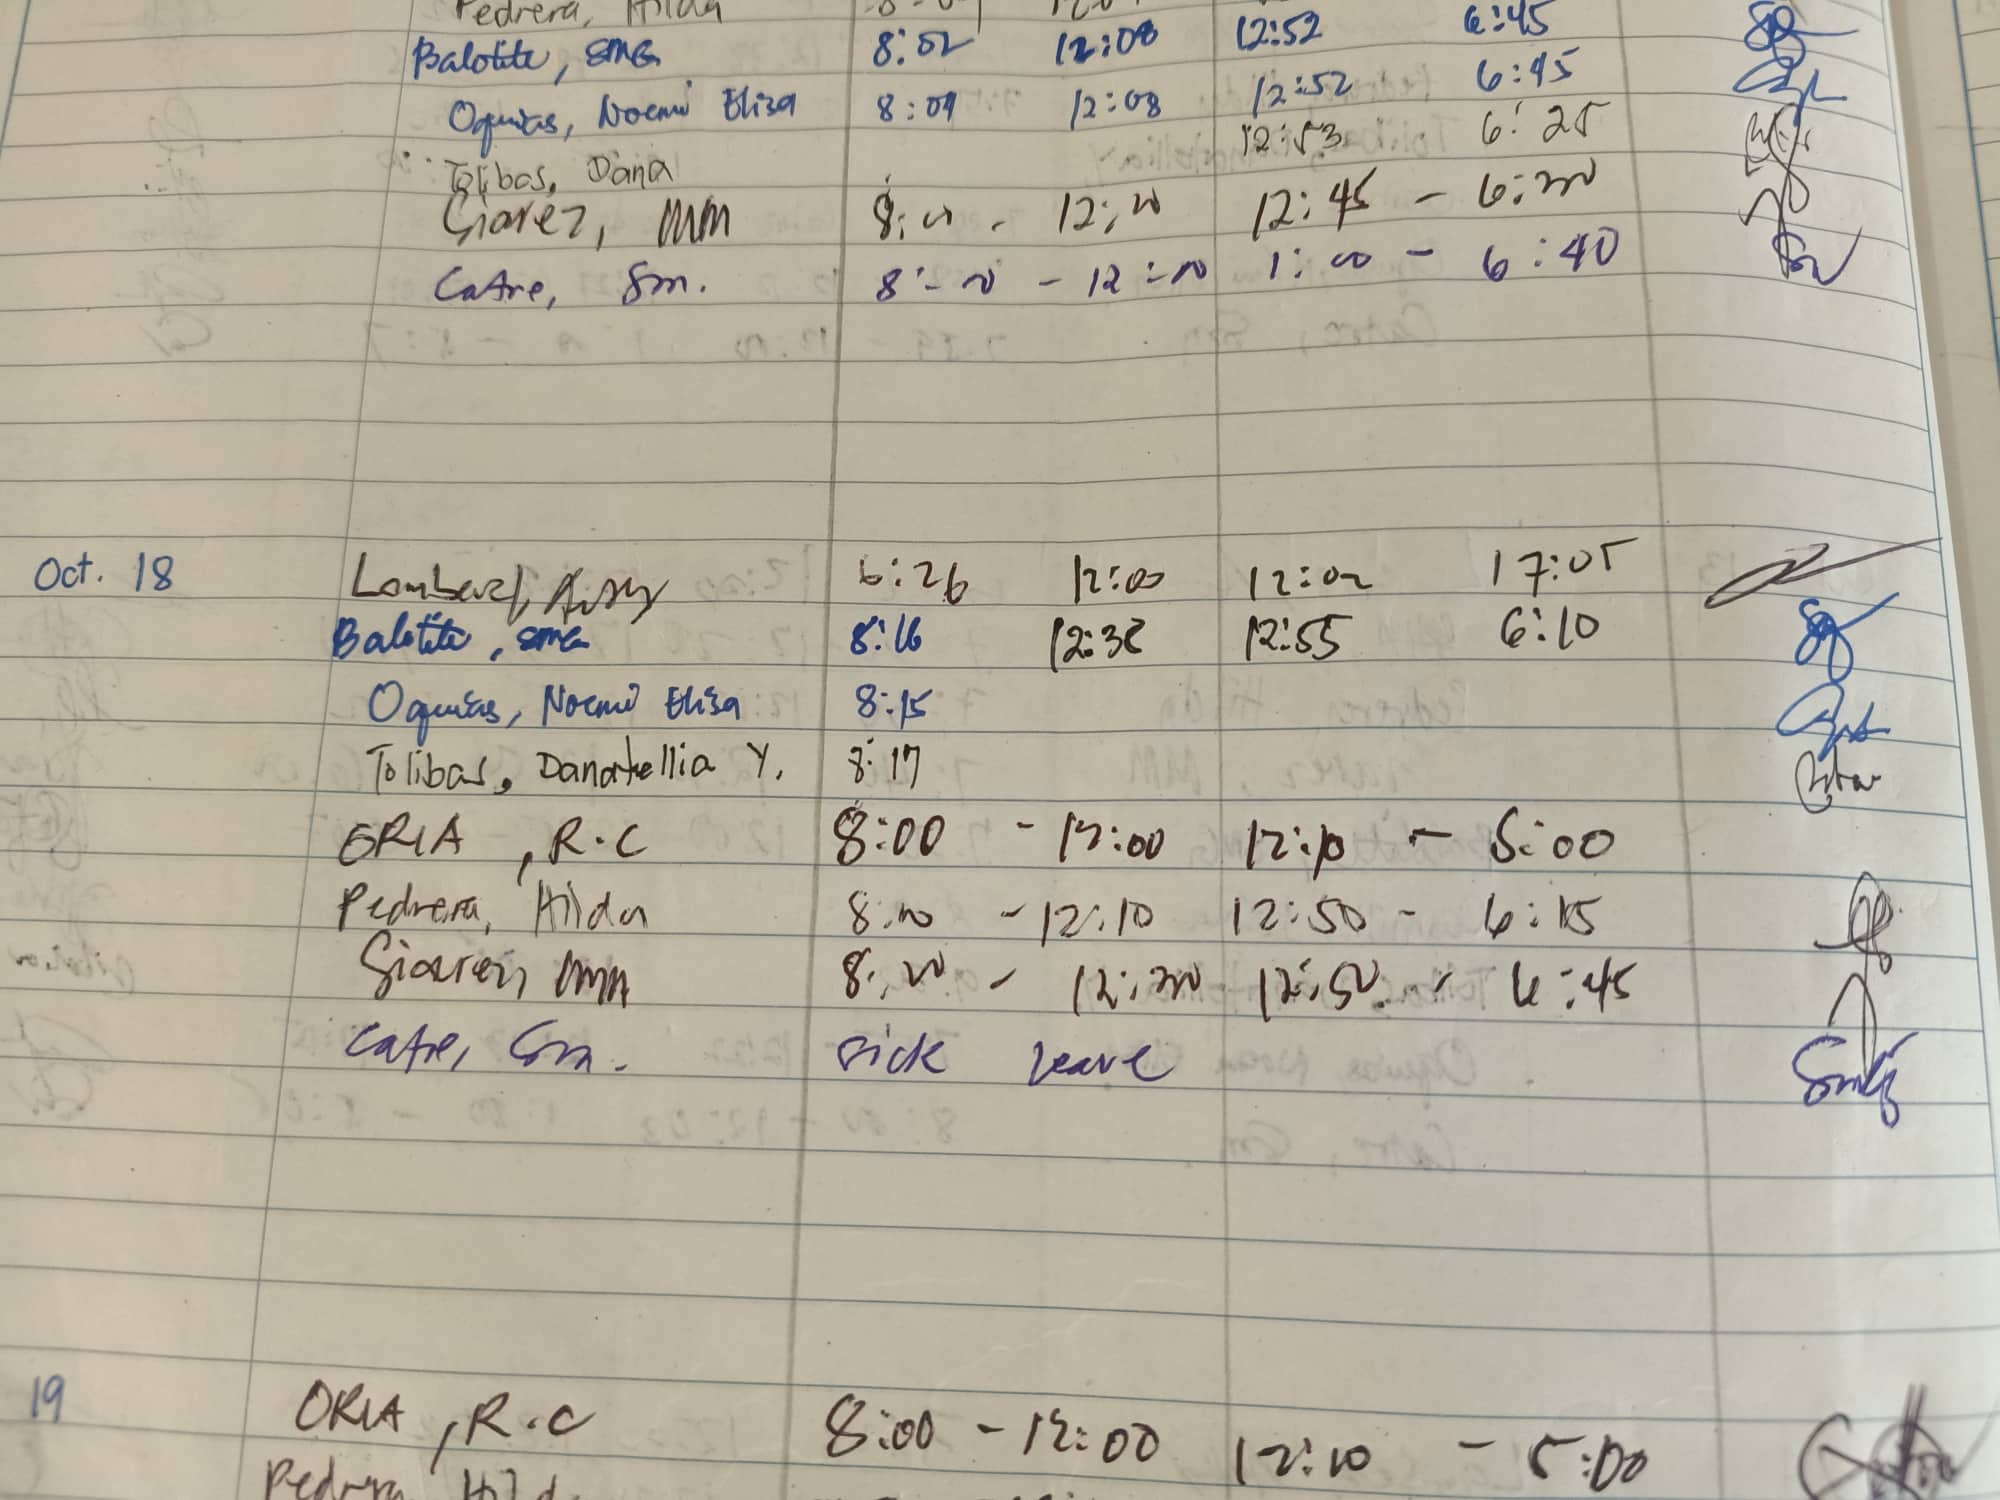 Pedrera, Hilda
Balotite, SMG 8:02 12:08 12:52 6:45
Oquias, Noemi Eliza 8:09 12:08 12:52 6:45
Tolibas, Dana 12:53 6:25
Siarez, MM 8:00 - 12:20 12:45 - 6:30
Catre, Sm. 8:20 - 12:10 1:00 - 6:40
Oct. 18 6:26 12:00 12:02 17:05
Balotite, SMG 8:16 12:38 12:55 6:10
Oquias, Noemi Eliza 8:15
Tolibas, Danarhellia Y. 8:17
ORIA, R.C 8:00 - 12:00 12:10 - 5:00
Pedrera, Hilda 8:10 - 12:10 12:50 - 6:15
Siarez, MM 8:20 - 12:30 12:50 - 6:45
Catre, Sm. sick leave
19 ORIA, R.C 8:00 - 12:00 12:10 - 5:00
Pedrera, Hild